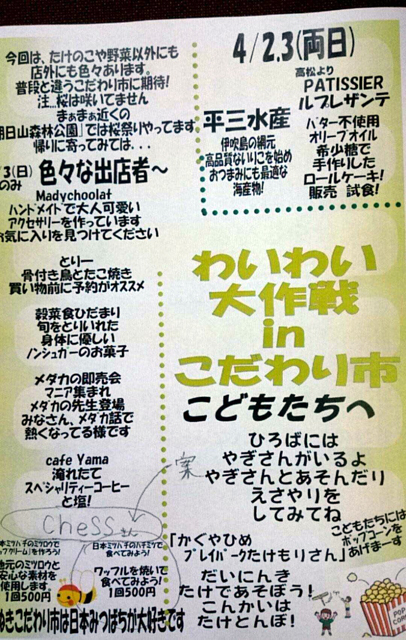 今回は、たけのこや野菜以外にも
店外にも色々あります。
普段と違うこだわり市に期待!
注...桜は咲いてません
まぁまぁ近くの
朝日山森林公園」では桜祭りやってます
帰りに寄てみては...
3(日)
のみ
色々な出店者～
Madychoolat
ハンドメイドで大人可愛い
アクセサリーを作っています
お気に入りを見つけてください
とりー
骨付き鳥とたこ焼き
買い物前に予約がオススメ
穀菜食ひだまり
旬をとりいれた
身体に優しい
ノンシュガーのお菓子
メダカの即売会
マニア集まれ
メダカの先生登場
みなさん、メダカ話で
熱くなってる様です
cafe Yama
淹れたて
スペシャリティーコーヒー
と塩!
chess
日本ミツバチのミツロウで
を作ろう!
地元のミツロウと
安心な素材を
使用します。
1回500円
日本ミツバチのハチミツで
食べてみよう!
ワッフルを焼いて
食べてみよう!
1回500円
ぬきこだわり市は日本みつばちが大好きです
4/2.3(両日)
平三水産
伊吹島の網元
高品質ないりこを始め
おつまみにも最適な
海産物!
高松より
PATISSIER
ルプレザンテ
バター不使用
オリーブオイル
希少糖で
手作りした
ロールケーキ!
販売 試食!
わいわい
大作戦
in
こだわり市
こどもたちへ
ひろばには
やぎさんがいるよ
やぎさんとあそんだり
えさやりを
してみてね
こどもたちには
ポップコーンを
あげまーす
「かぐやひめ
プレイパークたけもりさん」
だいにんき
たけであそぼう!
こんかいは
たけとんぼ!
POP
CORN